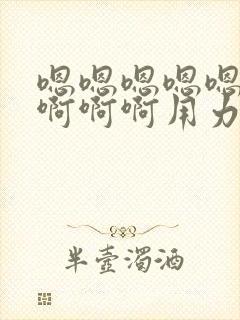 嗯嗯嗯嗯嗯
啊啊啊用力
半壶浊酒